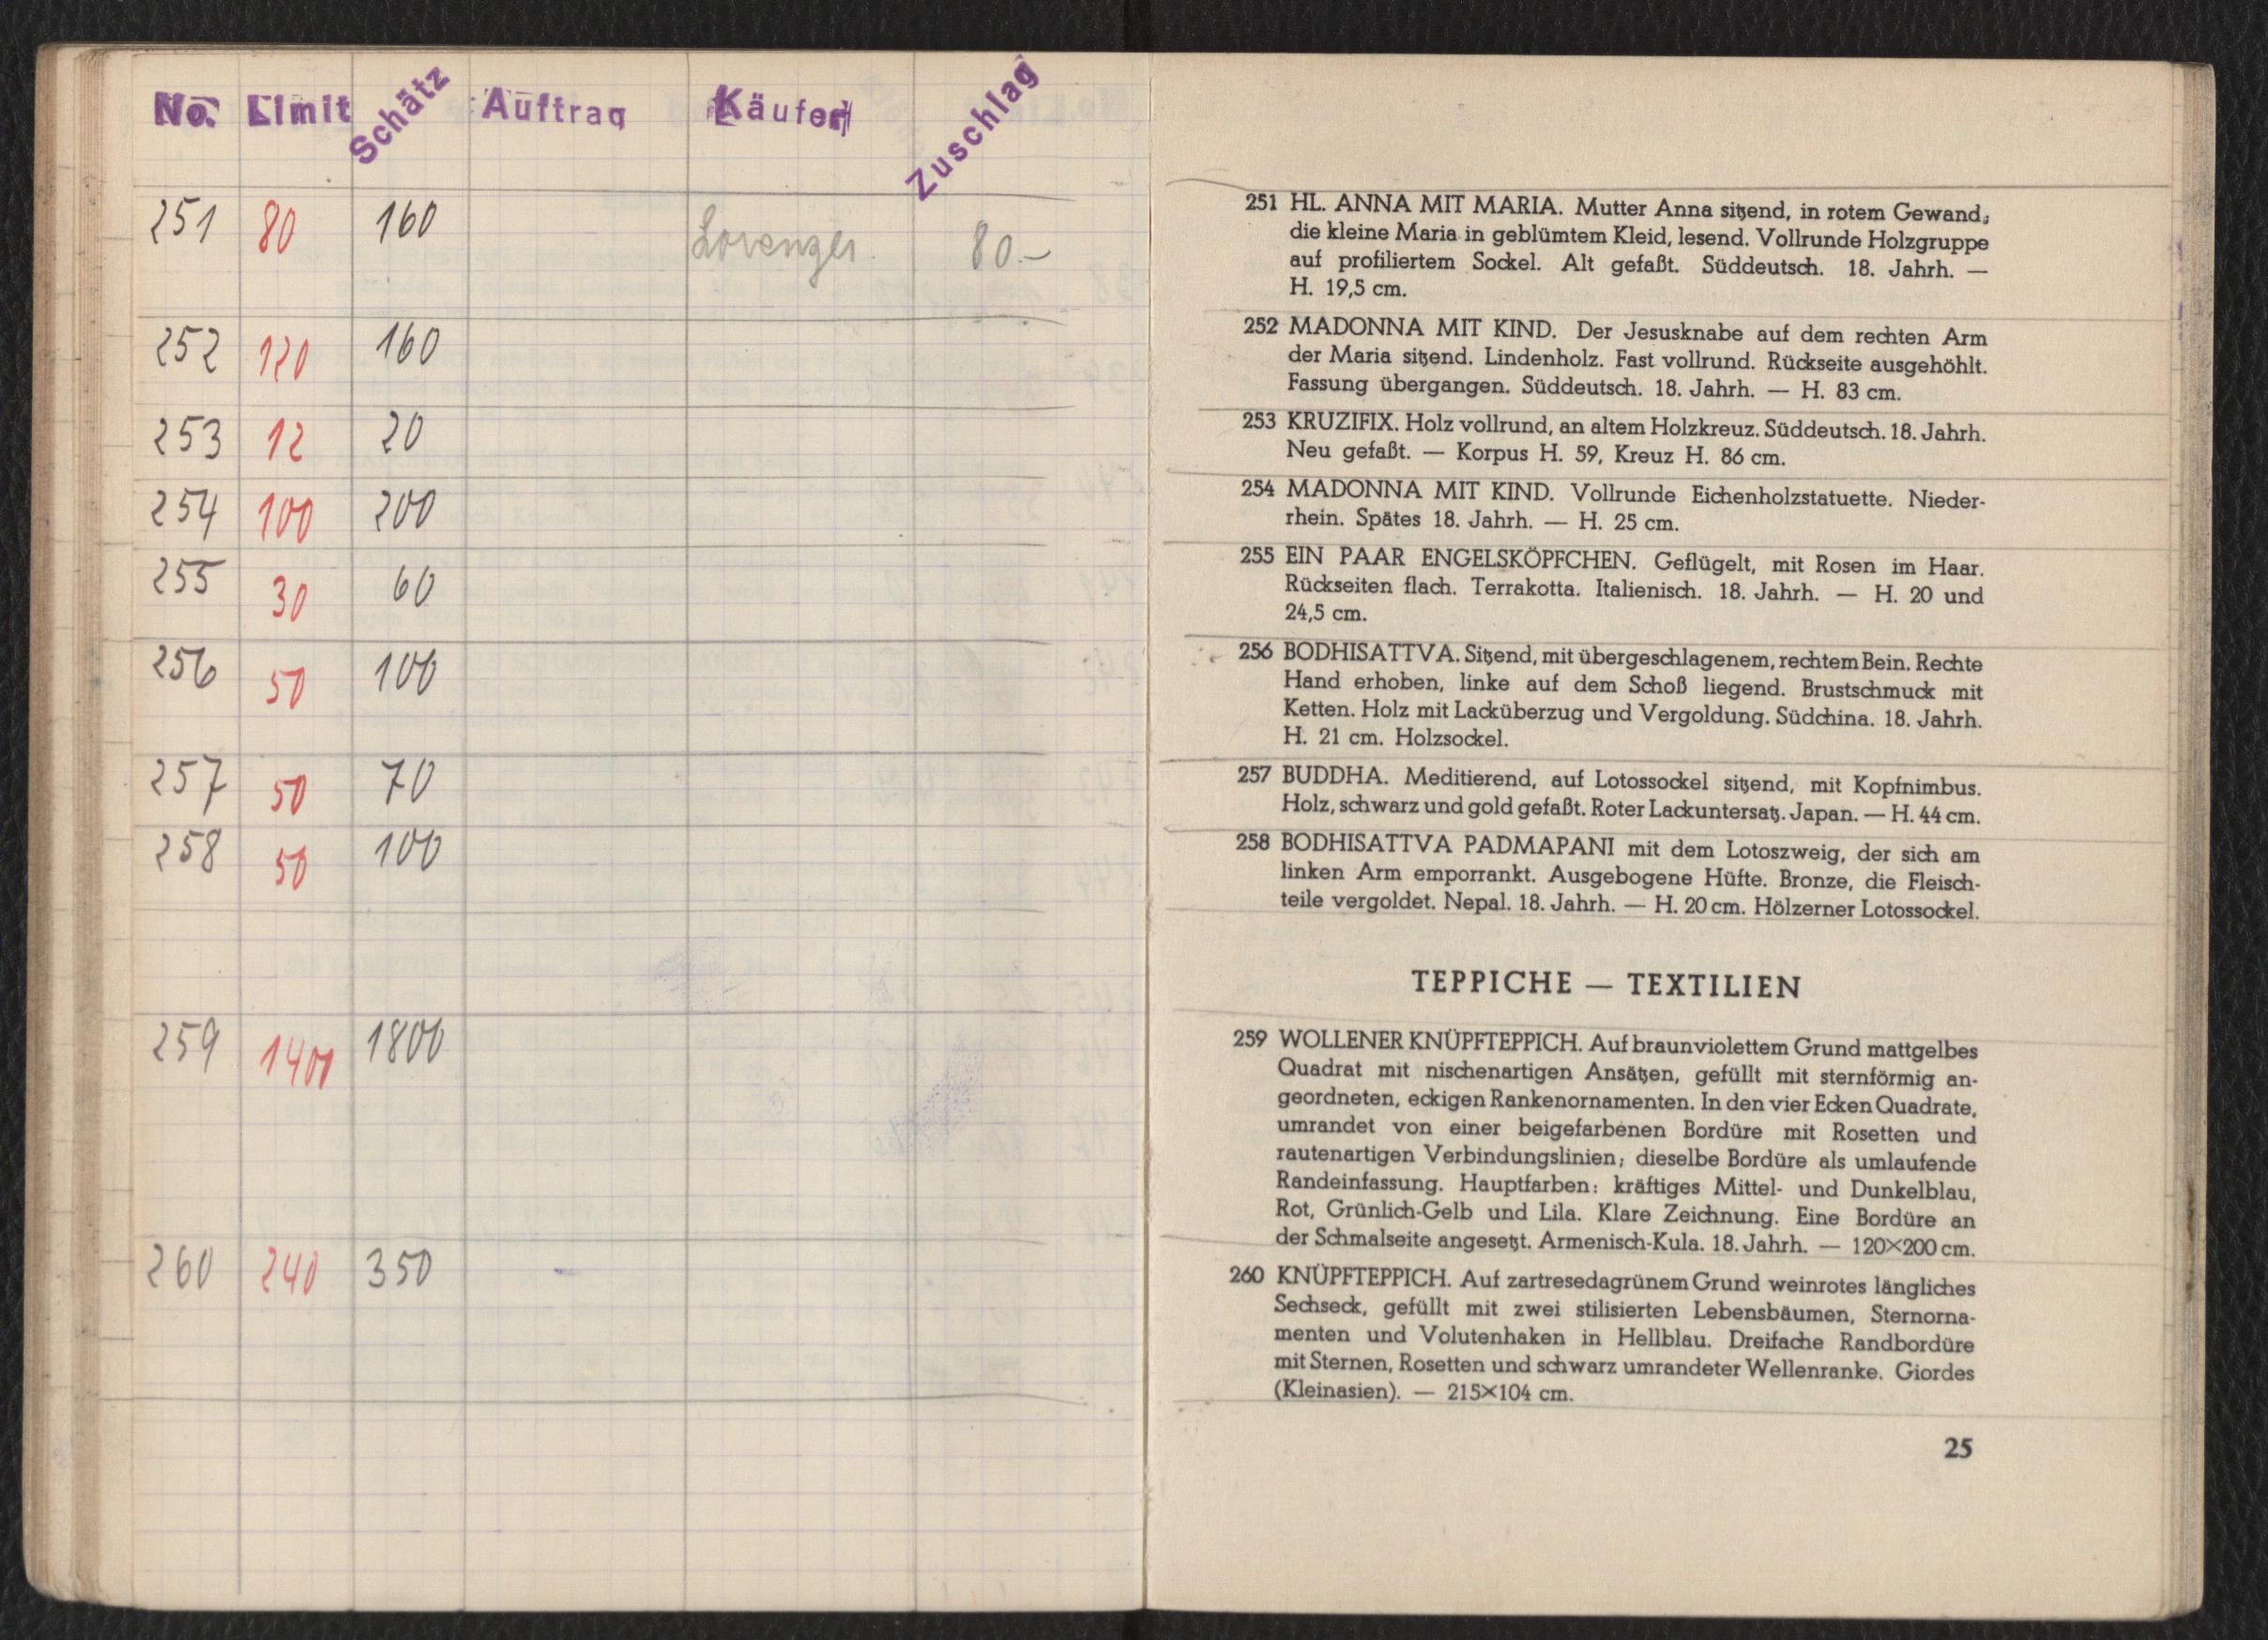 No. Limit Schätz Auftrag Käufer Zuschlag
251 80 160 80.-
252 120 160
253 12 20
254 100 200
255 30 60
256 50 100
257 50 70
258 50 100
259 1400 1800
260 240 350
251 HL. ANNA MIT MARIA. Mutter Anna sitzend, in rotem Gewand,
die kleine Maria in geblümtem Kleid, lesend. Vollrunde Holzgruppe
auf profiliertem Sockel. Alt gefaßt. Süddeutsch. 18. Jahrh. —
H. 19,5 cm.
252 MADONNA MIT KIND. Der Jesusknabe auf dem rechten Arm
der Maria sitzend. Lindenholz. Fast vollrund. Rückseite ausgehöhlt.
Fassung übergangen. Süddeutsch. 18. Jahrh. — H. 83 cm.
253 KRUZIFIX. Holz vollrund, an altem Holzkreuz. Süddeutsch. 18. Jahrh.
Neu gefaßt. — Korpus H. 59, Kreuz H. 86 cm.
254 MADONNA MIT KIND. Vollrunde Eichenholzstatuette. Nieder-
rhein. Spätes 18. Jahrh. — H. 25 cm.
255 EIN PAAR ENGELSKÖPFCHEN. Geflügelt, mit Rosen im Haar.
Rückseiten flach. Terrakotta. Italienisch. 18. Jahrh. — H. 20 und
24,5 cm.
256 BODHISATTVA. Sitzend, mit übergeschlagenem, rechtem Bein. Rechte
Hand erhoben, linke auf dem Schoß liegend. Brustschmuck mit
Ketten. Holz mit Lacküberzug und Vergoldung. Südchina. 18. Jahrh.
H. 21 cm. Holzsockel.
257 BUDDHA. Meditierend, auf Lotossockel sitzend, mit Kopfnimbus.
Holz, schwarz und gold gefaßt. Roter Lackuntersatz. Japan. — H. 44 cm.
258 BODHISATTVA PADMAPANI mit dem Lotoszweig, der sich am
linken Arm emporrankt. Ausgebogene Hüfte. Bronze, die Fleisch-
teile vergoldet. Nepal. 18. Jahrh. — H. 20 cm. Hölzerner Lotossockel.
TEPPICHE — TEXTILIEN
259 WOLLENER KNÜPFTEPPICH. Auf braunviolettem Grund mattgelbes
Quadrat mit nischenartigen Ansätzen, gefüllt mit sternförmig an-
geordneten, eckigen Rankenornamenten. In den vier Ecken Quadrate,
umrandet von einer beigefarbenen Bordüre mit Rosetten und
rautenartigen Verbindungslinien; dieselbe Bordüre als umlaufende
Randeinfassung. Hauptfarben: kräftiges Mittel- und Dunkelblau,
Rot, Grünlich-Gelb und Lila. Klare Zeichnung. Eine Bordüre an
der Schmalseite angesetzt. Armenisch-Kula. 18. Jahrh. — 120×200 cm.
260 KNÜPFTEPPICH. Auf zartresedagrünem Grund weinrotes längliches
Sechseck, gefüllt mit zwei stilisierten Lebensbäumen, Sternorna-
menten und Volutenhaken in Hellblau. Dreifache Randbordüre
mit Sternen, Rosetten und schwarz umrandeter Wellenranke. Giordes
(Kleinasien). — 215×104 cm.
25